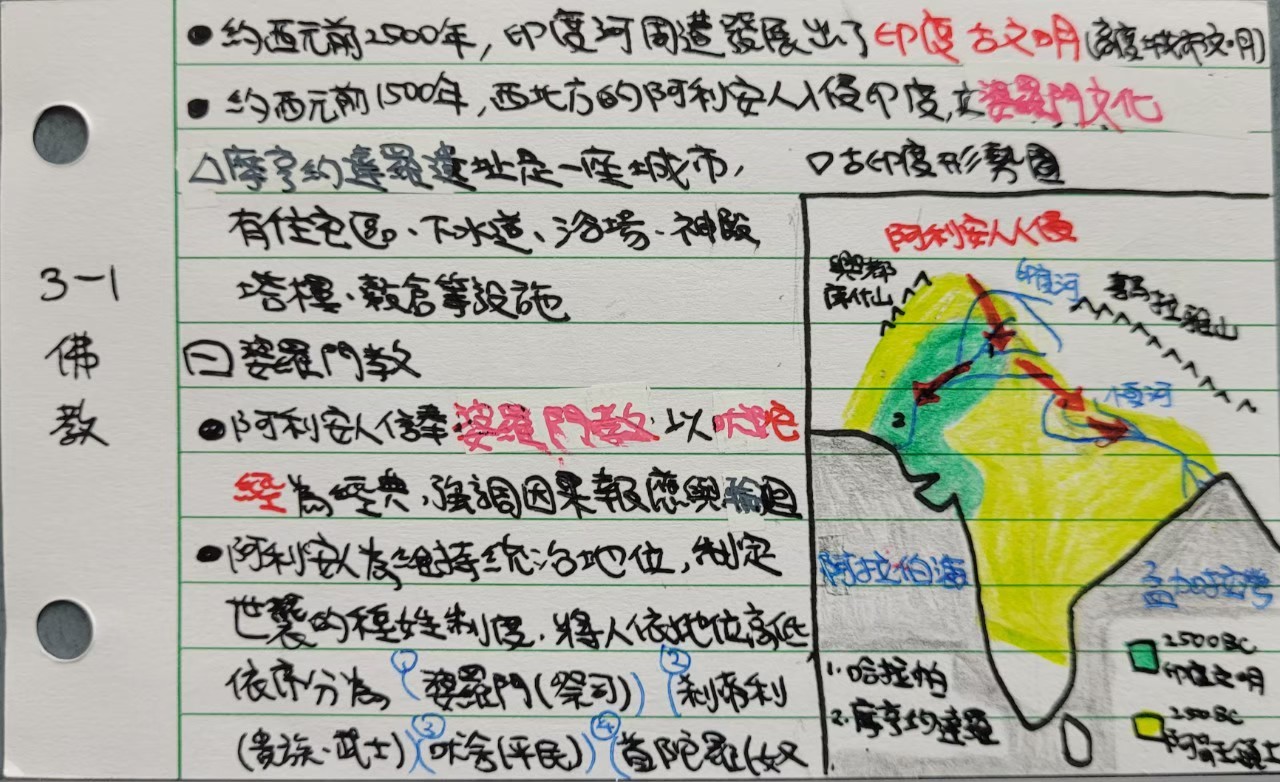 3-1
佛
教
●約西元前2500年,印度河周邊發展出了印度古文明(高度城市文明)
●約西元前1500年,西北方的阿利安人入侵印度,立婆羅門文化
△摩亨約達羅遺址是一座城市,
有住宅區、下水道、浴場、神殿
塔樓、穀倉等設施
㊀婆羅門教
●阿利安人信奉婆羅門教 以吠陀
經為經典,強調因果報應與輪迴
●阿利安人為維持統治地位,制定
世襲的種姓制度,將人依地位高低
依序分為①婆羅門(祭司)②剎帝利
(貴族、武士)③吠舍(平民)④首陀羅(奴
▽古印度形勢圖
阿利安人入侵
興都
庫什山
印度河
喜馬拉雅山
恒河
1
2
阿拉伯海
孟加拉灣
1.哈拉帕
2.摩亨約達羅
2500BC
印度文明
250BC